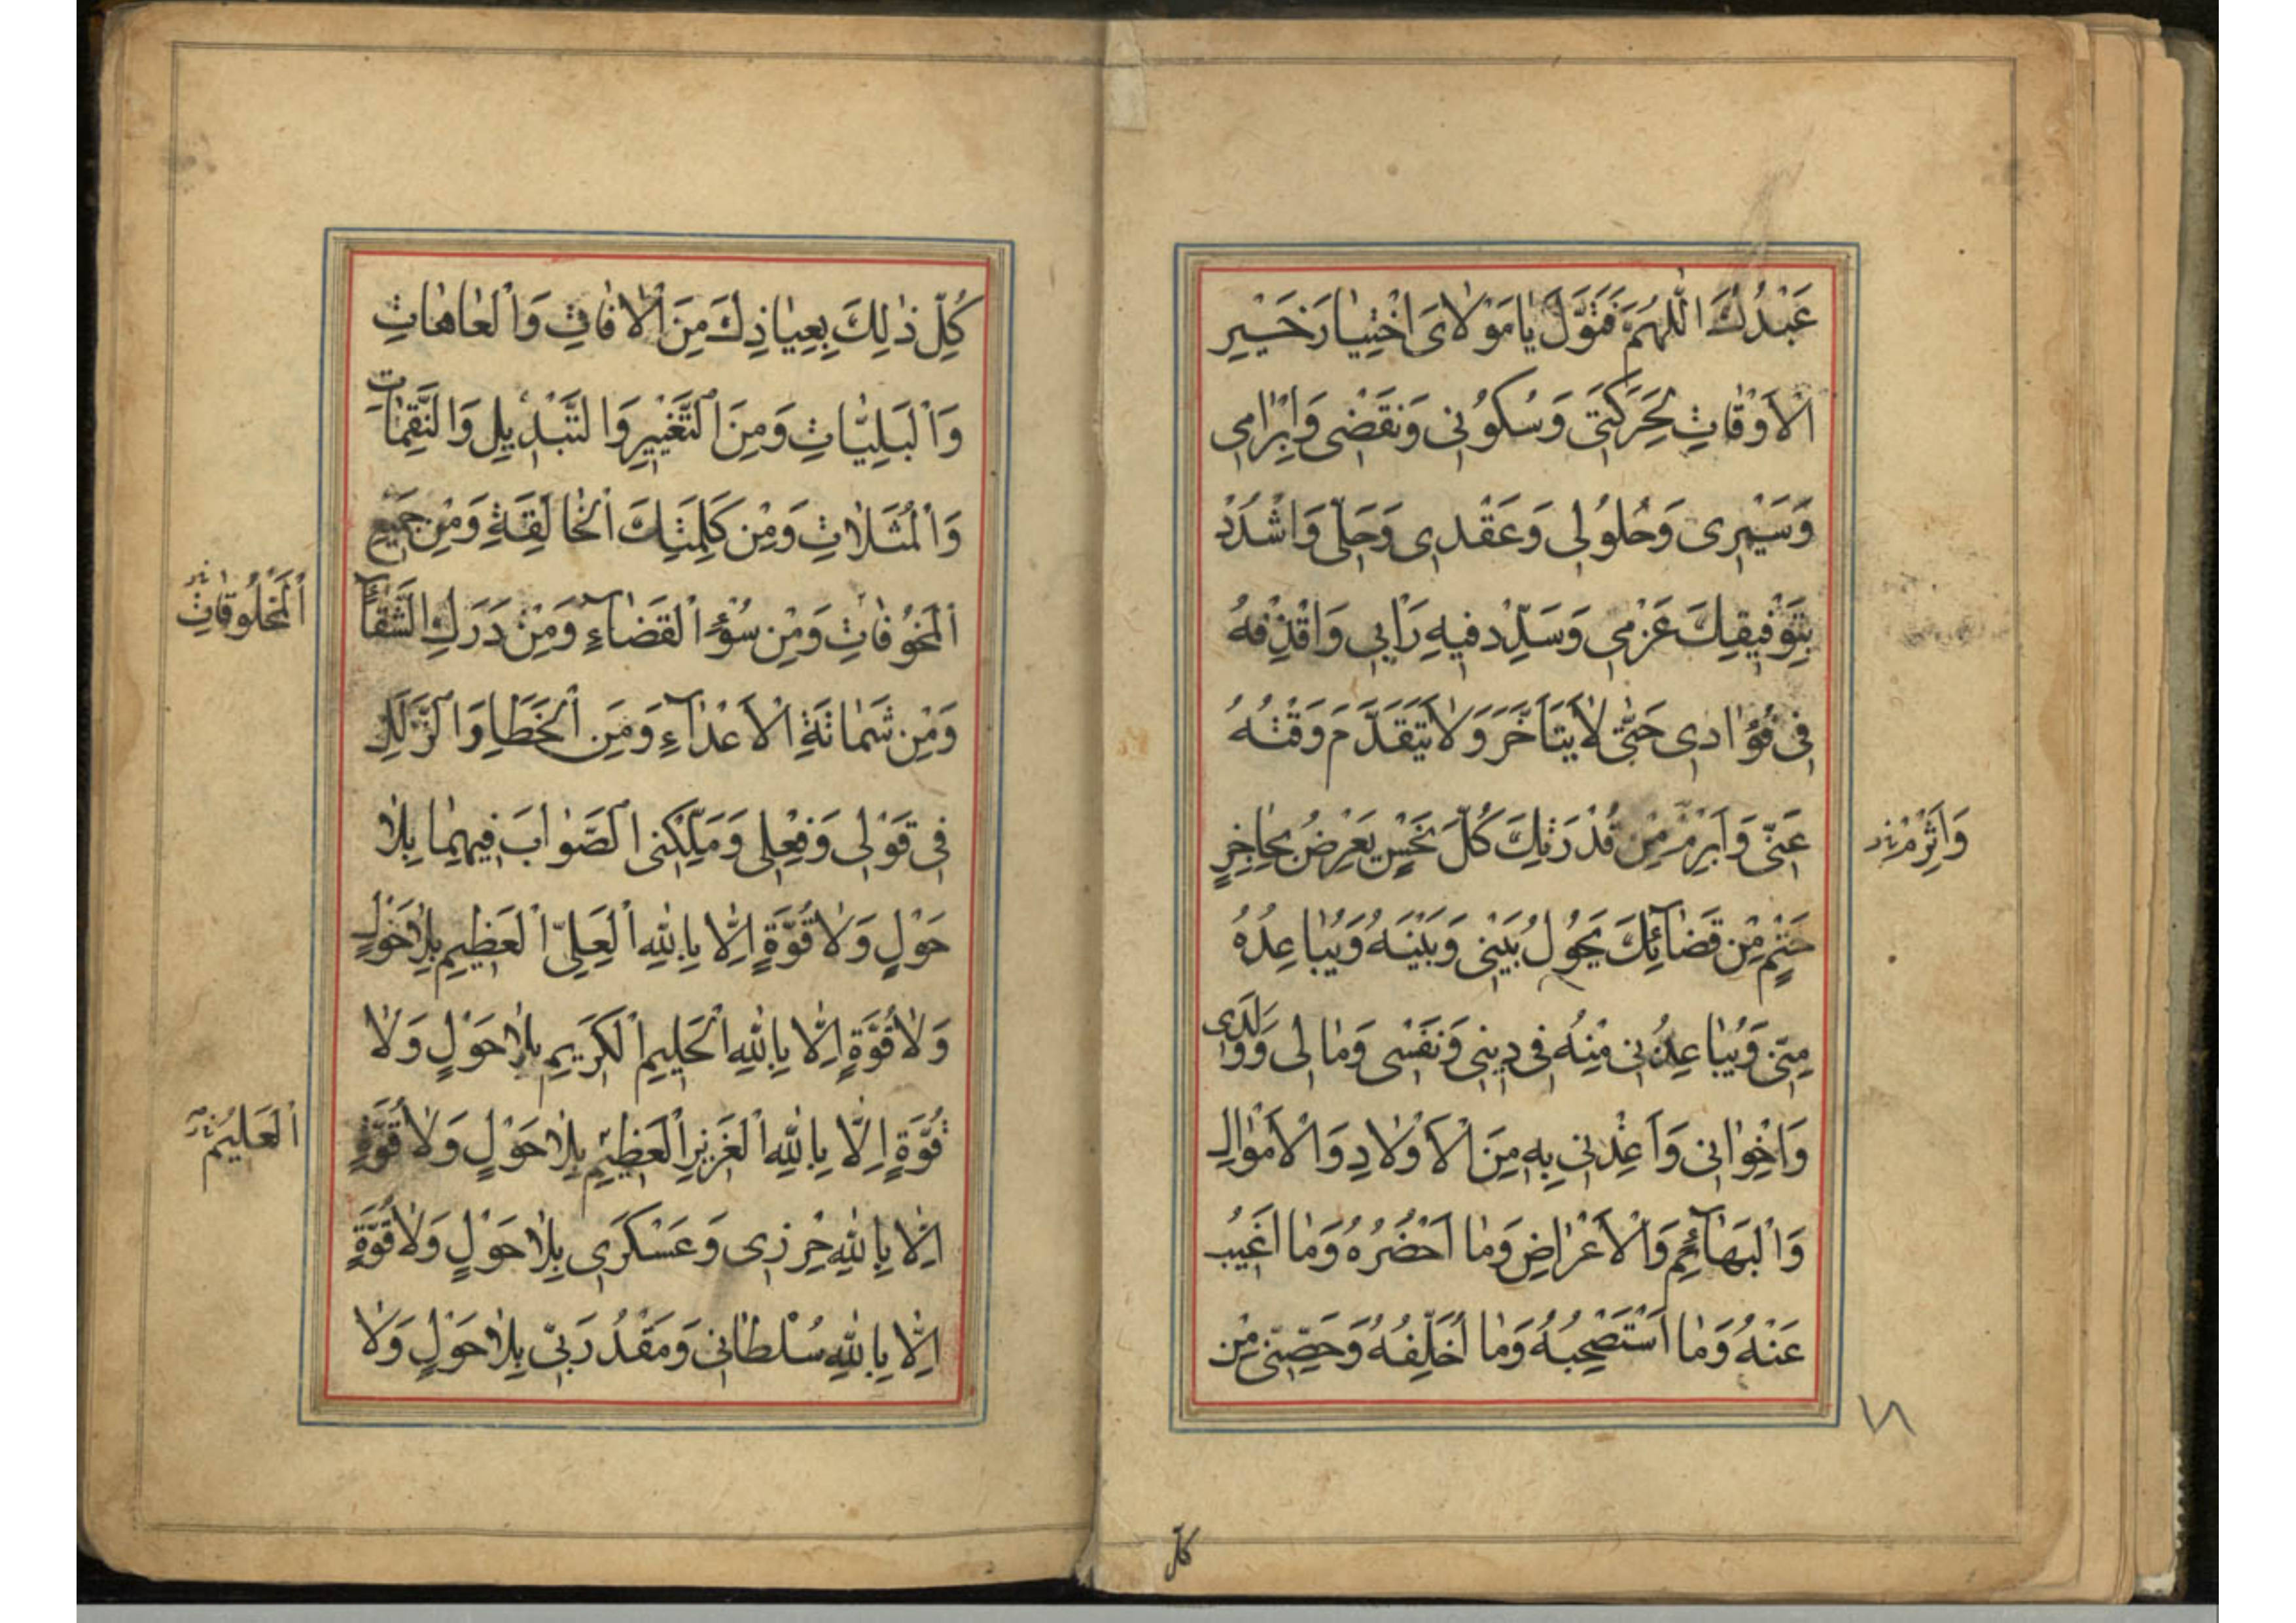 عَبْدُكَ اَللّٰهُمَّ فَتَوَلَّ يٰا مَوْلٰاىَ اخْتِيٰارَ خَيْرِ
الْاَوْقٰاتِ لِحَرَكَتى وَسُكُونى وَنَقْضى وَاِبْرٰامى
وَسَيْرى وَحُلُولى وَعَقْدى وَحَلّى وَاشْدُدْ
بِتَوْفيقِكَ عَزْمى وَسَدِّدْ فيهِ رَاْيى وَاقْذِفْهُ
فى فُؤٰادى حَتّٰى لٰا يَتَاَخَّرَ وَلٰا يَتَقَدَّمَ وَقْتُهُ
عَنّى وَاَبْرِمْ مِنْ قُدْرَتِكَ كُلَّ نَحْسٍ يَعْرِضُ بِحٰاجِزٍ
وَاَبْرِمْ
حَتْمٍ مِنْ قَضٰائِكَ يَحُولُ بَيْنى وَبَيْنَهُ وَيُبٰاعِدُهُ
مِنّى وَيُبٰاعِدُنى مِنْهُ فى دينى وَنَفْسى وَمٰالى وَوَلَدى
وَاِخْوٰانى وَاَعِذْنى بِهِ مِنَ الْاَوْلٰادِ وَالْاَمْوٰالِ
وَالْبَهٰآئِمِ وَالْاَعْرٰاضِ وَمٰا اَحْضُرُهُ وَمٰا اَغيبُ
عَنْهُ وَمٰا اَسْتَصْحِبُهُ وَمٰا اُخَلِّفُهُ وَحَصِّنّى مِنْ
كُلِّ
كُلِّ ذٰلِكَ بِعِيٰاذِكَ مِنَ الْاٰفٰاتِ وَالْعٰاهٰاتِ
وَالْبَلِيّٰاتِ وَمِنَ التَّغْييرِ وَالتَّبْديلِ وَالنَّقِمٰاتِ
وَالْمَثُلٰاتِ وَمِنْ كَلِمَتِكَ الْحٰالِقَةِ وَمِنْ جَميعِ
الْمَخُوفٰاتِ وَمِنْ سُوْءِ الْقَضٰاءِ وَمِنْ دَرَكِ الشَّقٰآءِ
الْمَخْلُوقٰاتِ
وَمِنْ شَمٰاتَةِ الْاَعْدٰآءِ وَمِنَ الْخَطَاِ وَالزَّلَلِ
فى قَوْلى وَفِعْلى وَمَلِّكْنى الصَّوٰابَ فيهِمٰا بِلٰا
حَوْلٍ وَلٰا قُوَّةٍ اِلّٰا بِاللّٰهِ الْعَلِىِّ الْعَظيمِ بِلٰا حَوْلٍ
وَلٰا قُوَّةٍ اِلّٰا بِاللّٰهِ الْحَليمِ الْكَريمِ بِلٰا حَوْلٍ وَلٰا
قُوَّةٍ اِلّٰا بِاللّٰهِ الْعَزيزِ الْعَظيمِ بِلٰا حَوْلٍ وَلٰا قُوَّةٍ
الْعَليمِ
اِلّٰا بِاللّٰهِ حِرْزى وَعَسْكَرى بِلٰا حَوْلٍ وَلٰا قُوَّةٍ
اِلّٰا بِاللّٰهِ سُلْطٰانى وَمَقْدُرَتى بِلٰا حَوْلٍ وَلٰا